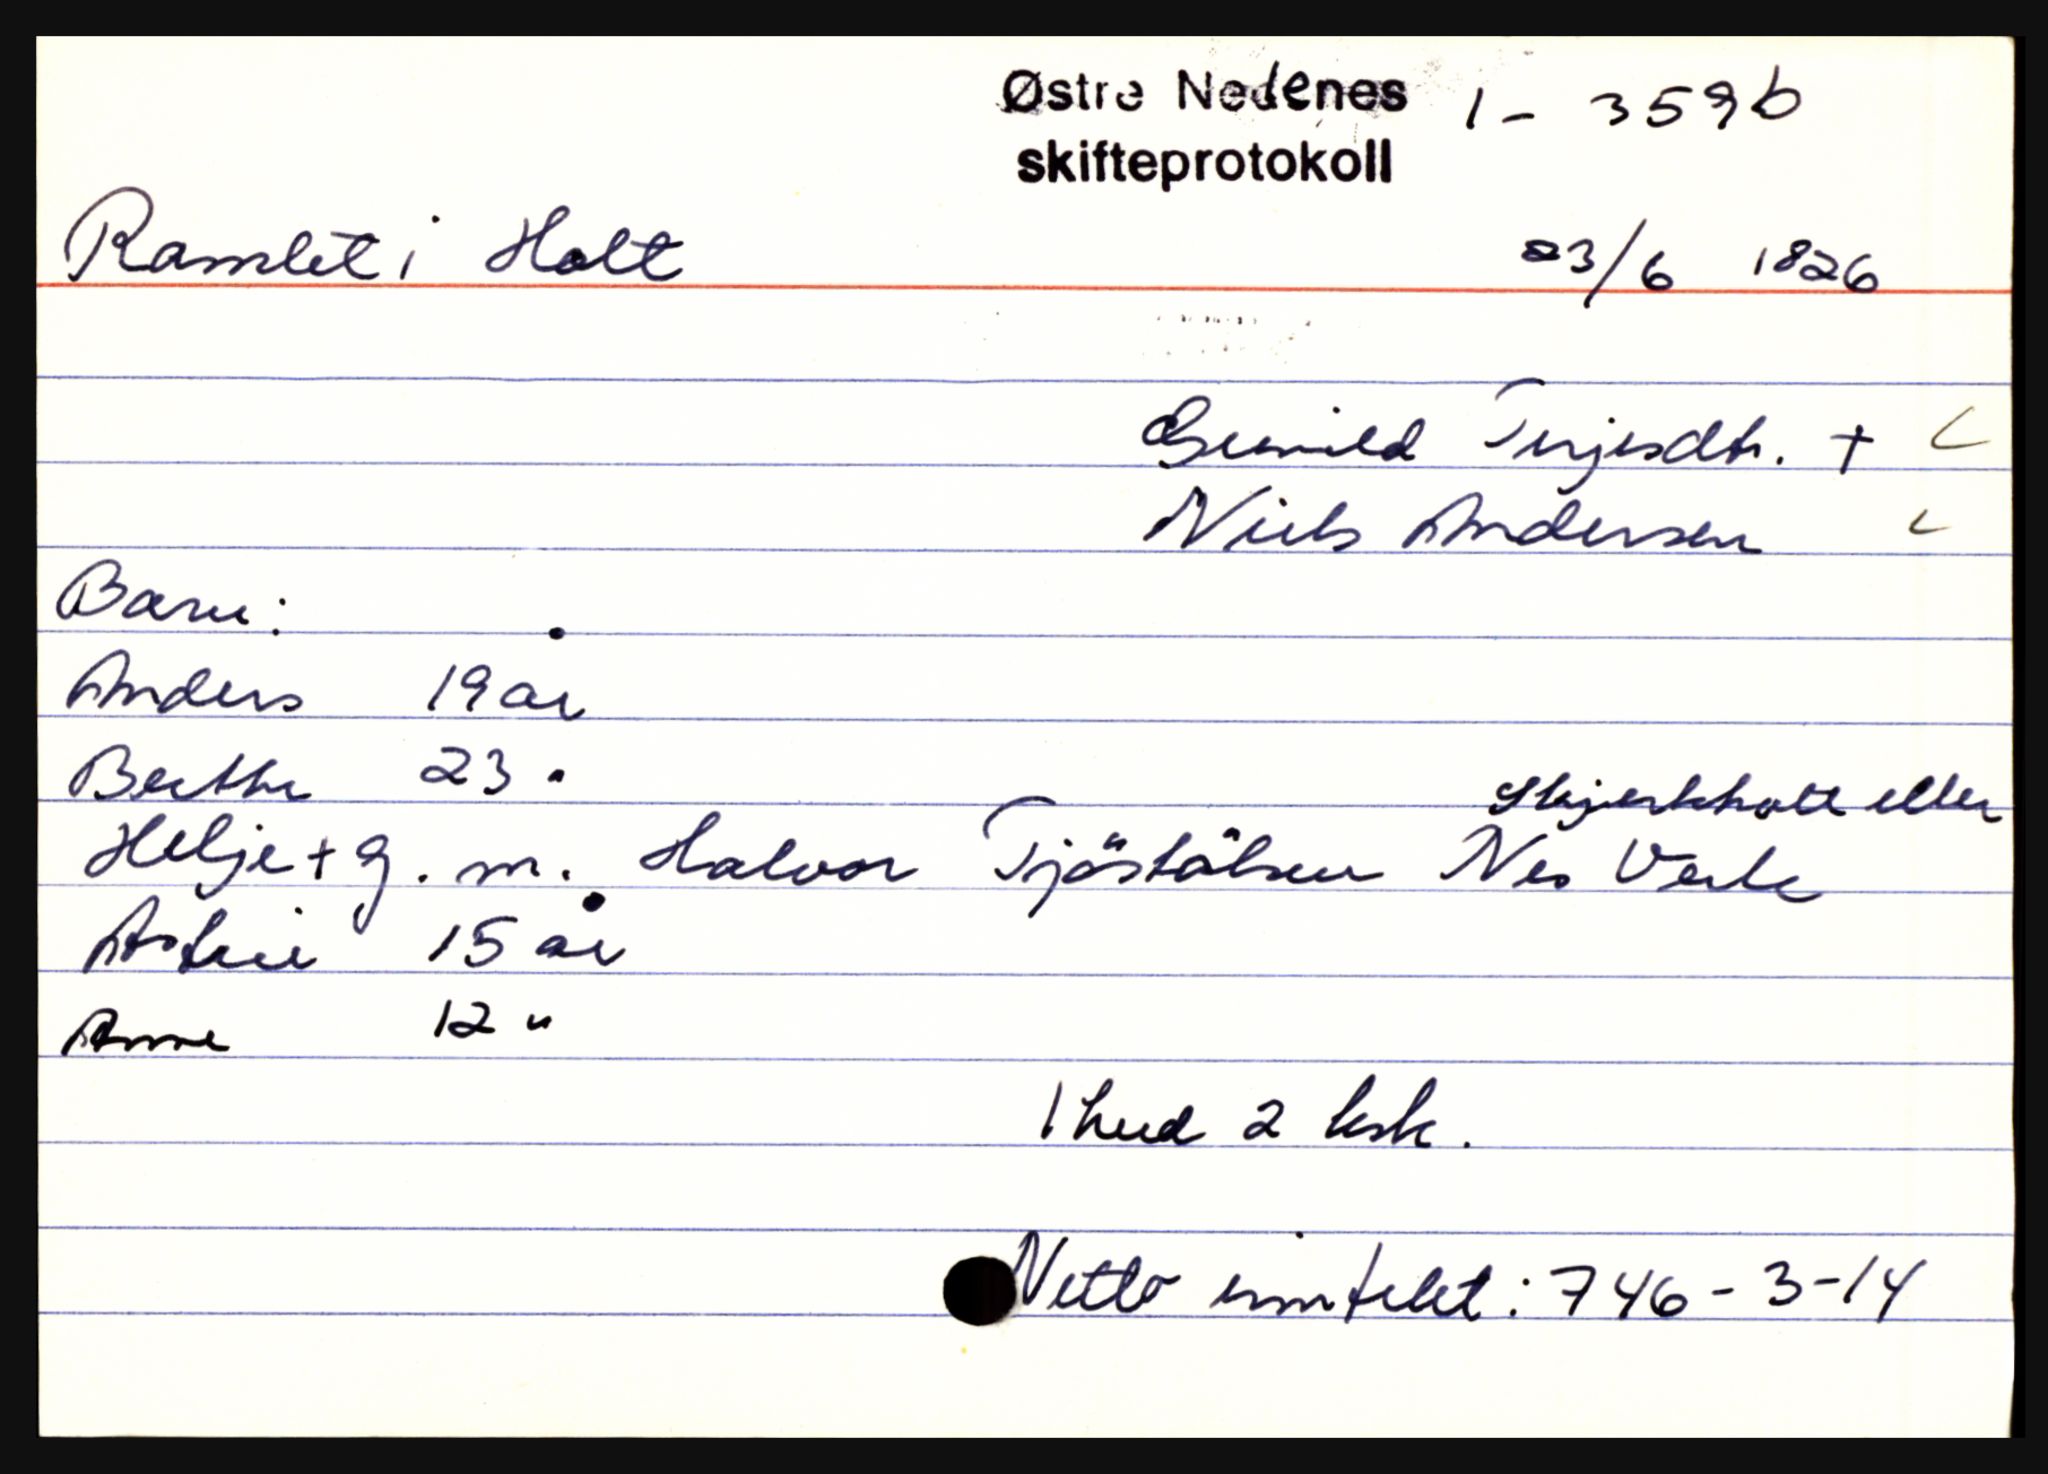 Østre Nedenes 1 - 359b
skifteprotokoll
Ramlet i Holt 23/6 1826
Gunild Terjesdtr. +
Niels Andersen
Barn:
Anders 19 år
Berthe 23 "
Skjerkholt eller
Helje + g. m. Halvor Tjöstålsen Nes Verk
Astrie 15 år
Anne 12 "
1 hud 2 ksk.
Netto innteket: 746 - 3 - 14